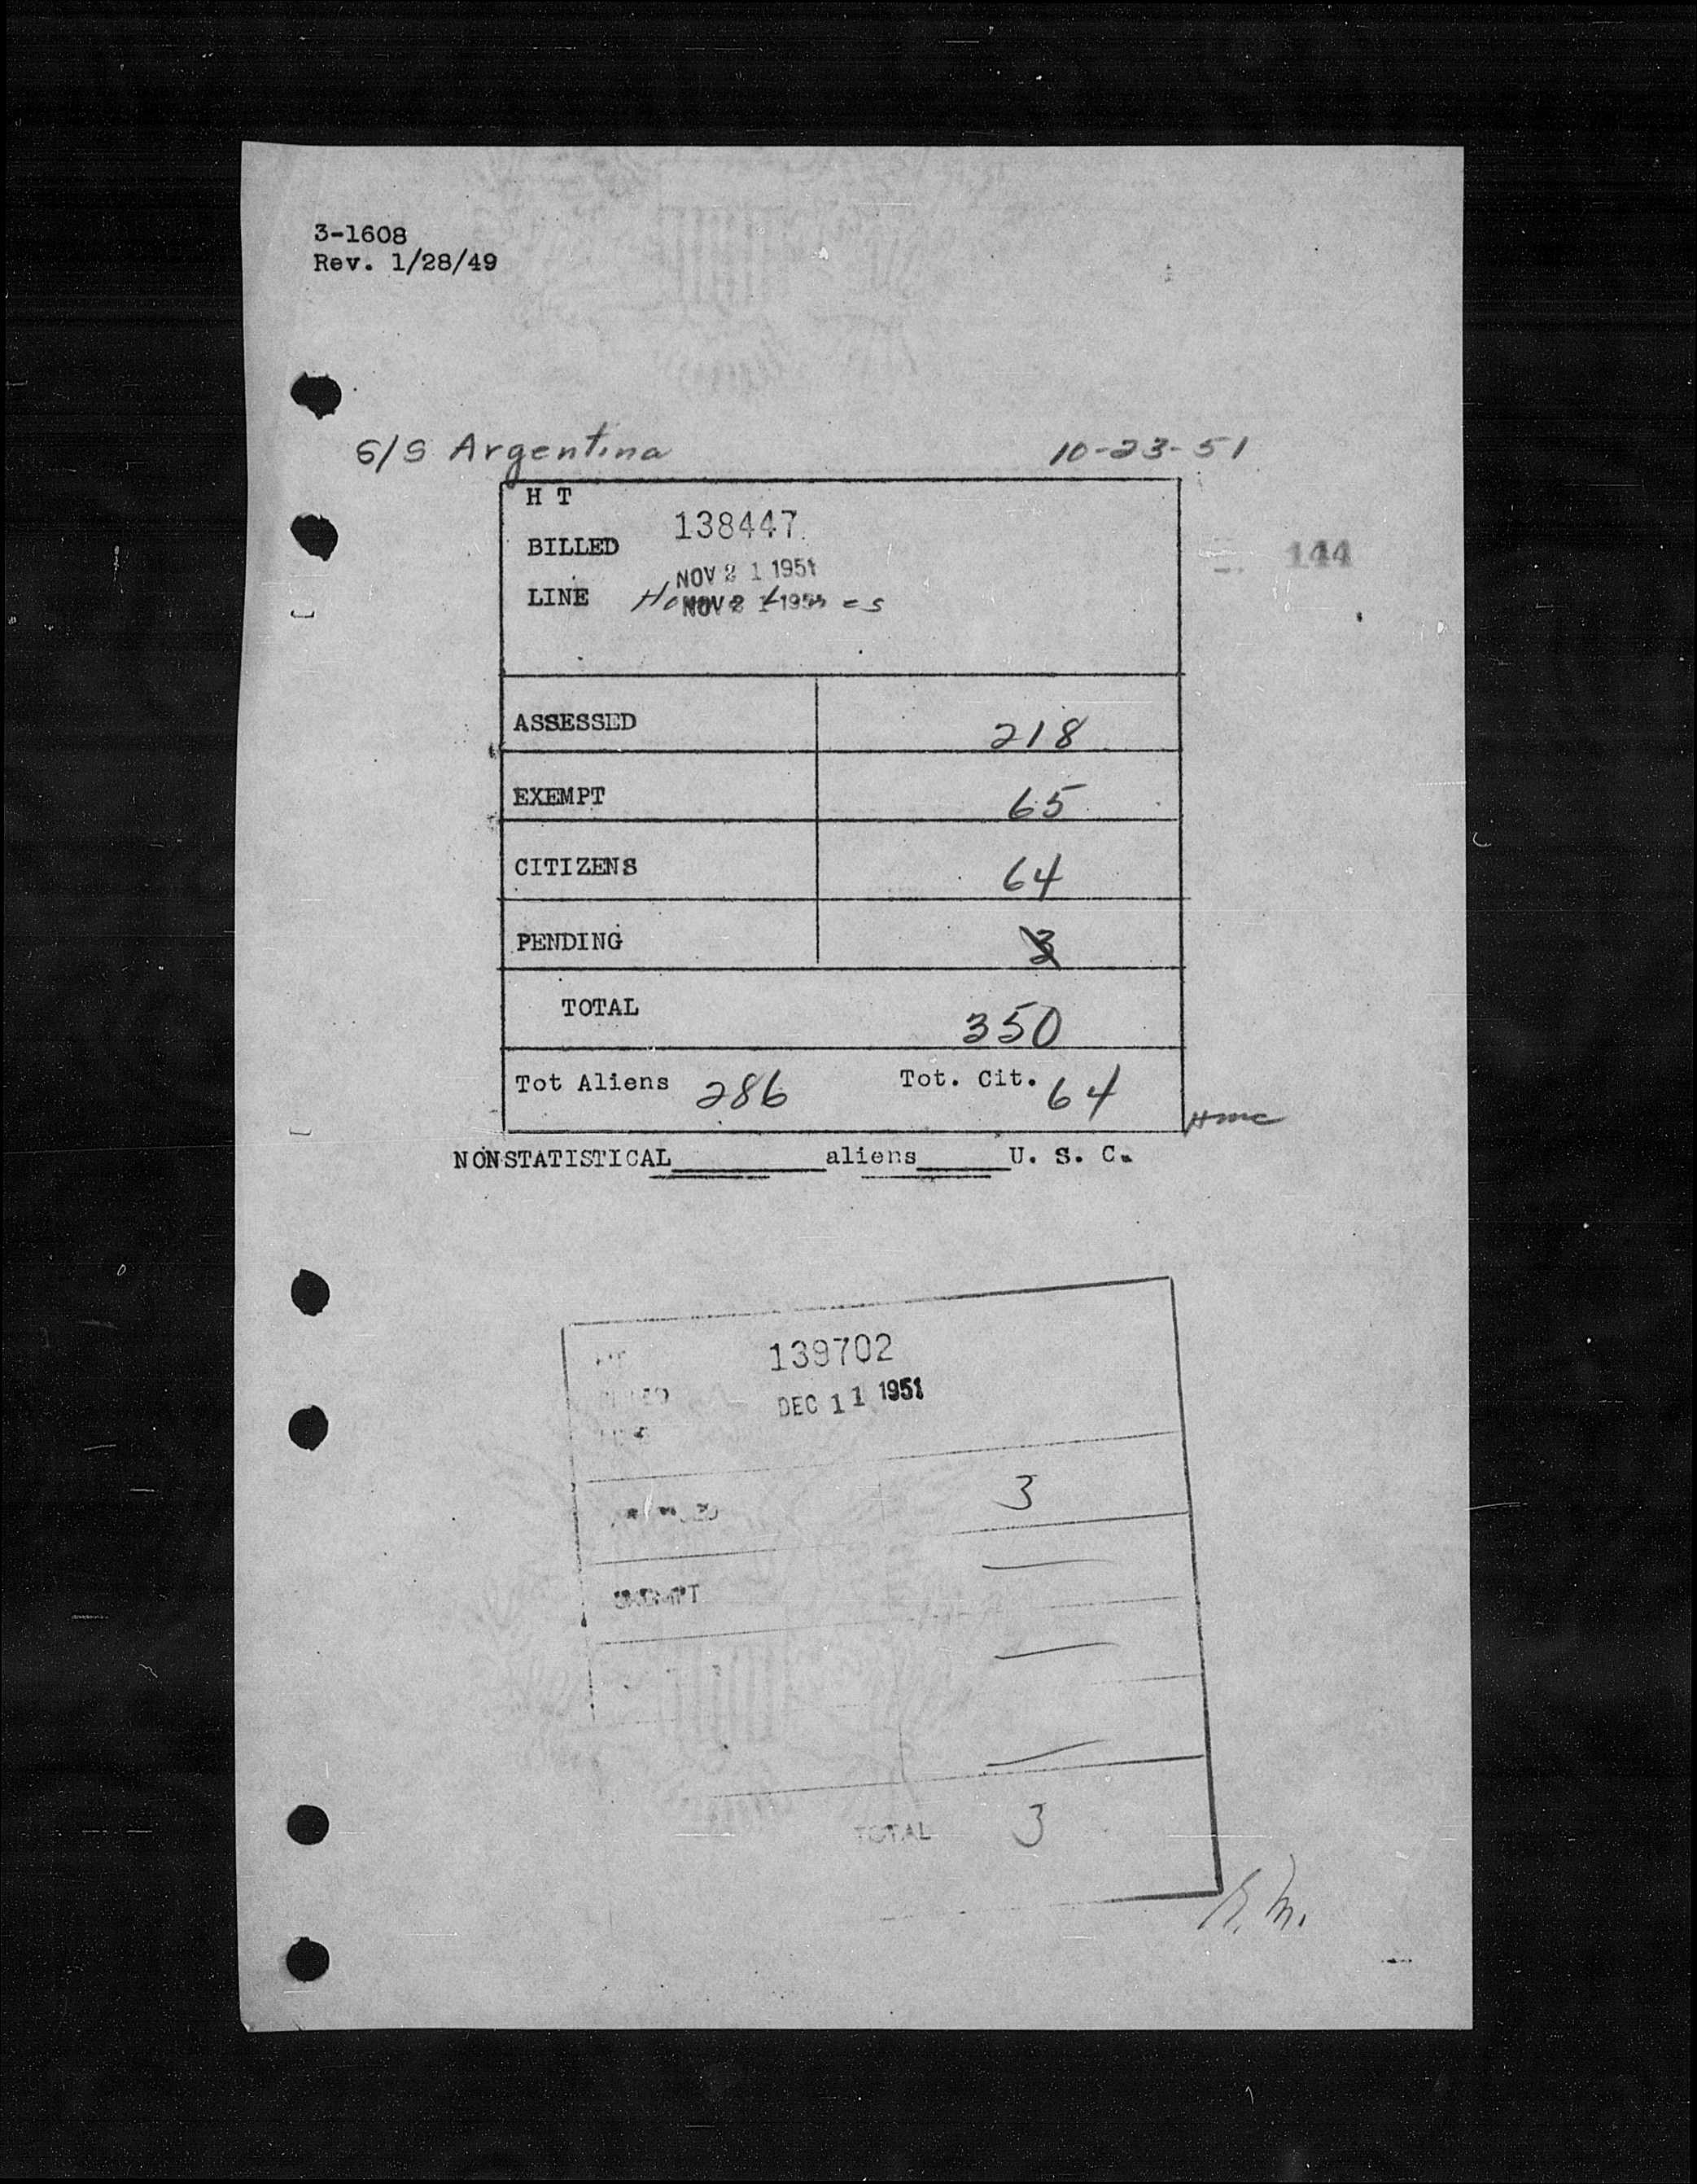 3-1608
Rev. 1/28/49
S/S Argentina 10-23-51
H T
138447
BILLED
144
NOV 21 1951
LINE NOV 21 1951
ASSESSED 218
EXEMPT 65
CITIZENS 64
PENDING 3
TOTAL 350
Tot Aliens 286 Tot. Cit. 64
NONSTATISTICAL aliens U. S. C.
139702
DEC 11 1951
3
EXEMPT
TOTAL 3